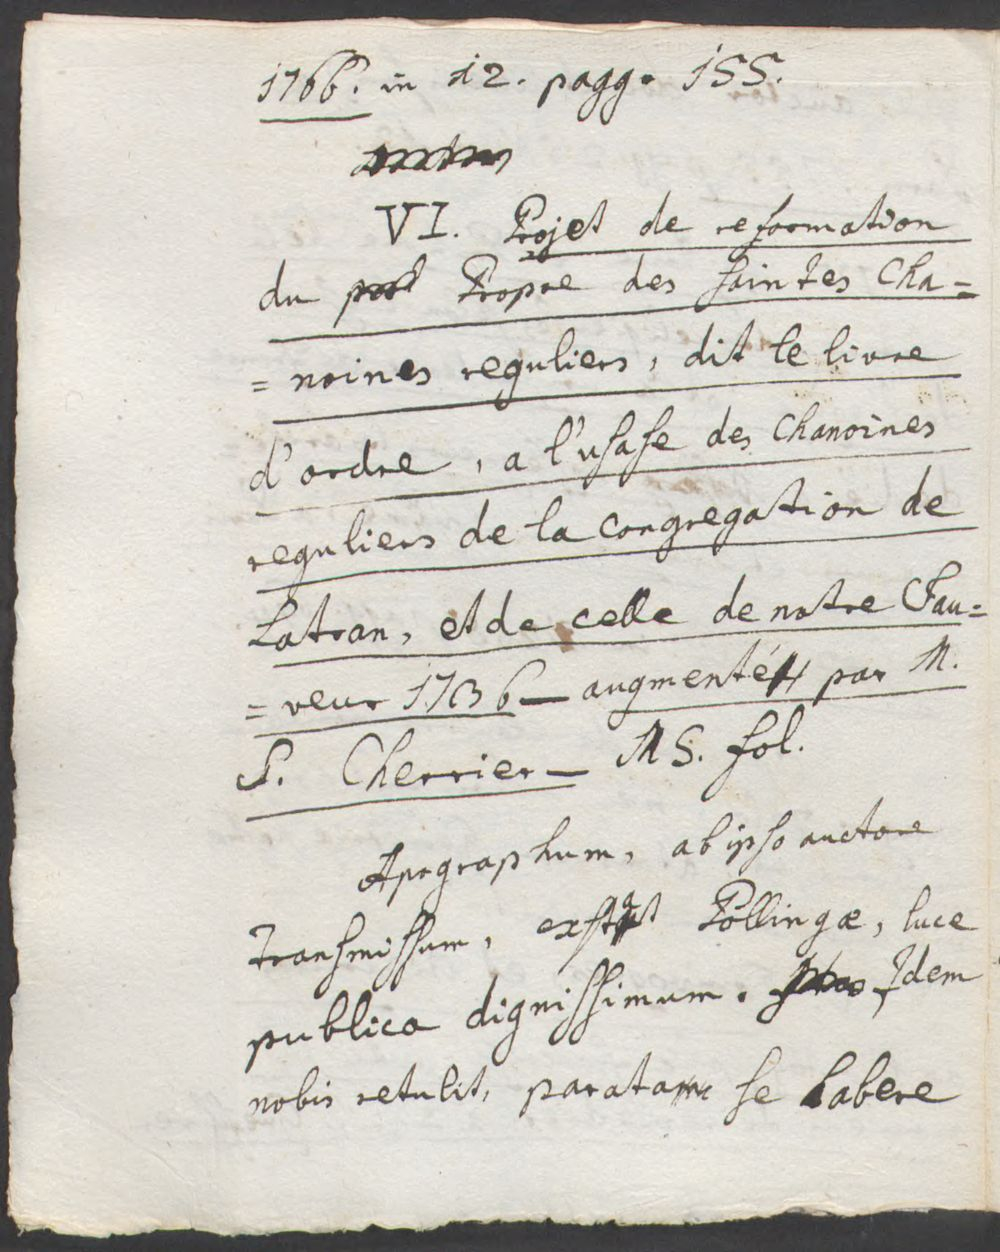 1766. in 12. pagg. 155.
VI. Projet de reformation
du Propre des saintes Cha=
=noines reguliers, dit le livre
d'ordre, a l'usase des Chanoines
reguliers de la congregation de
Latran, et de celle de notre Sau=
=veur 1736 — augmenté par M.
S. Cherrier — MS. fol.
Apographum, ab ipso auctore
transmissum, exstat Pollingæ, luce
publica dignissimum. Idem
nobis retulit, paratam se habere